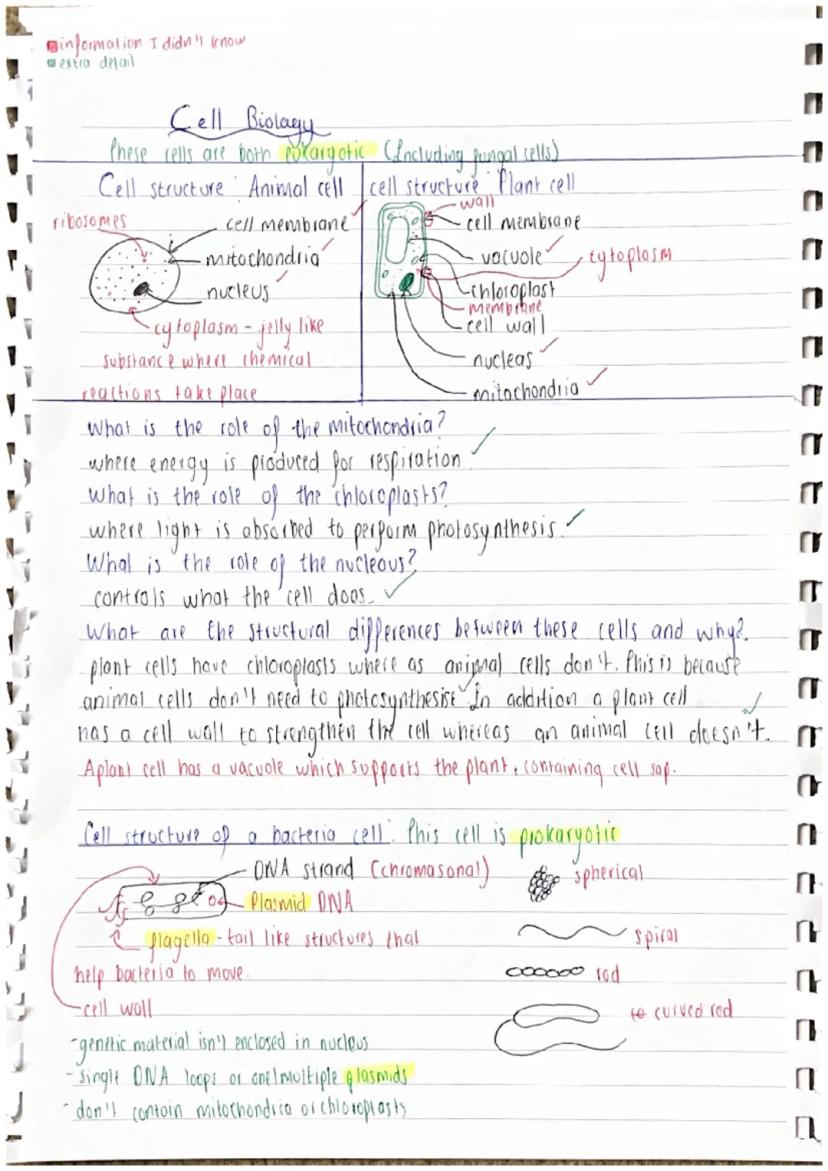 information I didn't know
extra detail
Cell Biology
These cells are both eukaryotic (Including fungal cells)
Cell structure: Animal cell
ribosomes
cell membrane
mitochondria
nucleus
cytoplasm - jelly like
substance where chemical
reactions take place
cell structure: Plant cell
wall
cell membrane
vacuole
cytoplasm
chloroplast
membrane
cell wall
nucleas
mitochondria
What is the role of the mitochondria?
where energy is produced for respiration
What is the role of the chloroplasts?
where light is absorbed to perform photosynthesis.
What is the role of the nucleous?
controls what the cell does.
What are the structural differences between these cells and why?
plant cells have chloroplasts where as animal cells don't. This is because
animal cells don't need to photosynthesise. In addition a plant cell
has a cell wall to strengthen the cell whereas an animal cell doesn't.
A plant cell has a vacuole which supports the plant, containing cell sap.
Cell structure of a bacteria cell: This cell is prokaryotic
DNA strand (chromasonal)
Plasmid DNA
flagella - tail like structures that
help bacteria to move.
cell wall
spherical
spiral
rod
curved rod
- genetic material isn't enclosed in nucleus
- single DNA loops or one/multiple plasmids
- don't contain mitochondria or chloroplasts